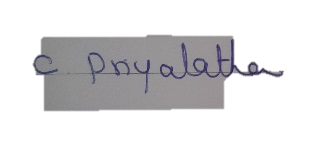 C Priyalatha